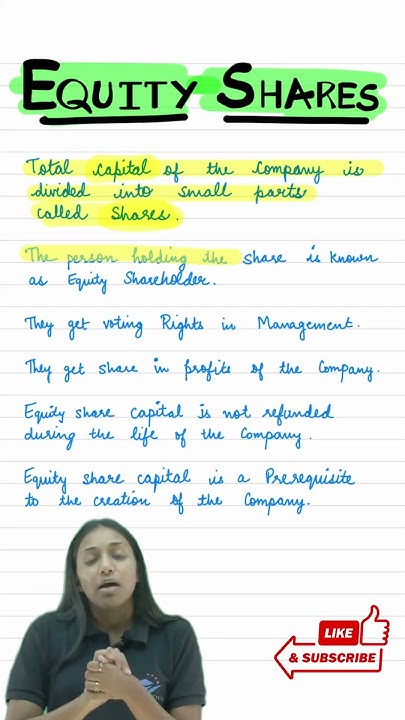 EQUITY SHARES
Total capital of the Company is
divided into small parts
called Shares.
The person holding the share is known
as Equity Shareholder.
They get voting Rights in Management.
They get share in profits of the Company.
Equity share capital is not refunded
during the life of the Company.
Equity share capital is a Prerequisite
to the creation of the Company.
LIKE
& SUBSCRIBE